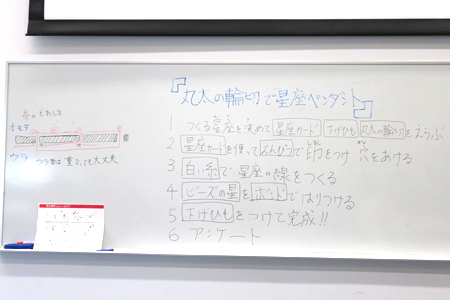 糸のとおし方
オモテ
ウラ
ウラ面は重なっても大丈夫
『丸太の輪切で星座ペンダント』
1 つくる星座を決めて 星座カード 下げひも 丸太の輪切 をえらぶ
2 星座カードを使って えんぴつで 印をつけ 穴をあける
3 白い糸で 星座の線をつくる
4 ビーズの星をボンドではりつける
5 下げひもをつけて完成!!
6 アンケート